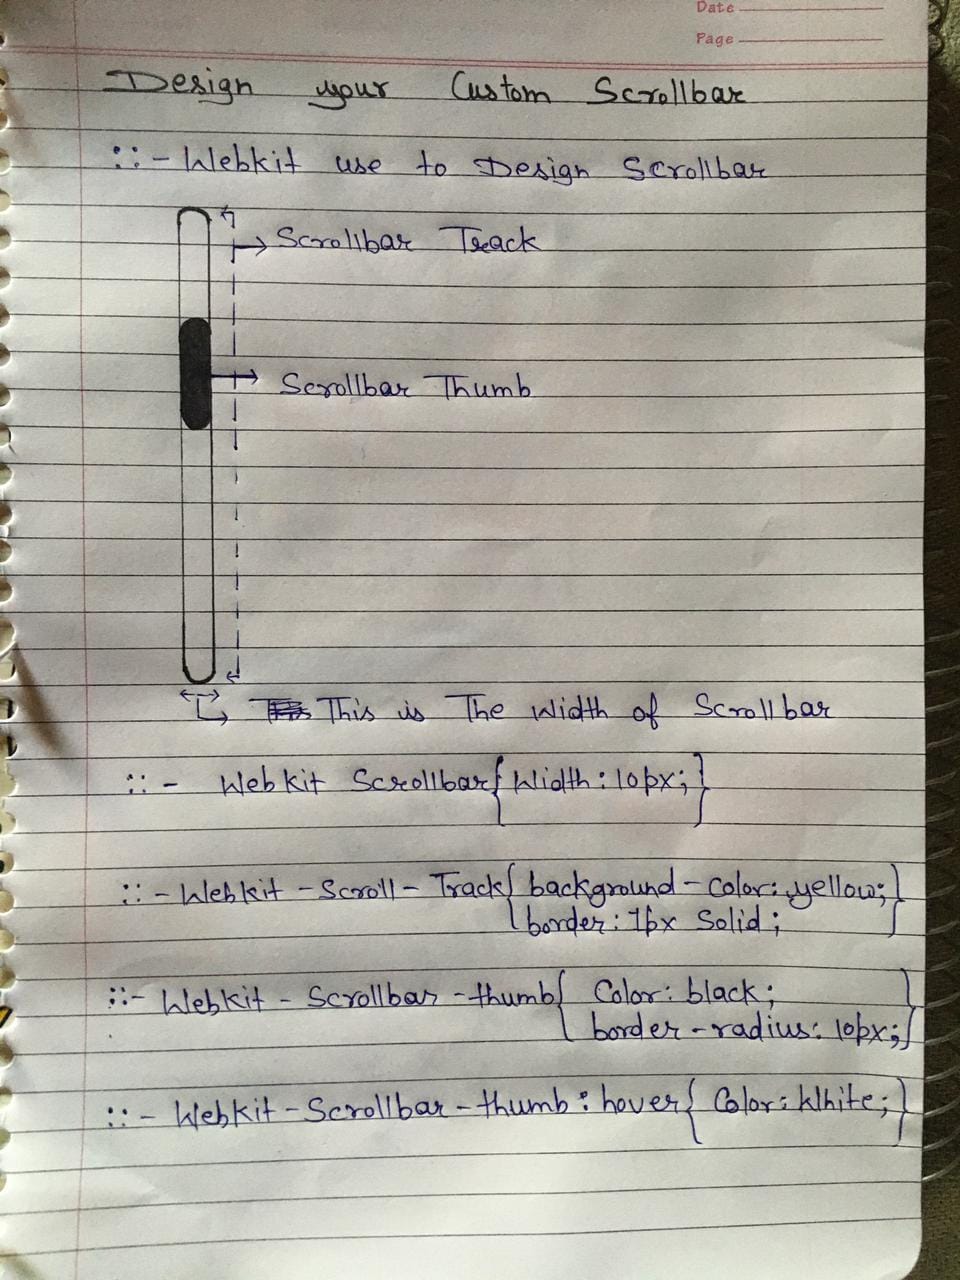 Date
Page
Design your Custom Scrollbar
::-Webkit use to Design Scrollbar
Scrollbar Track
Scrollbar Thumb
This is The Width of Scrollbar
::- Webkit Scrollbar{Width:10px;}
::-Webkit-Scroll-Track{background-color:yellow;
border:1px Solid;}
::-Webkit-Scrollbar-thumb{Color:black;
border-radius:10px;}
::-Webkit-Scrollbar-thumb:hover{Color:White;}